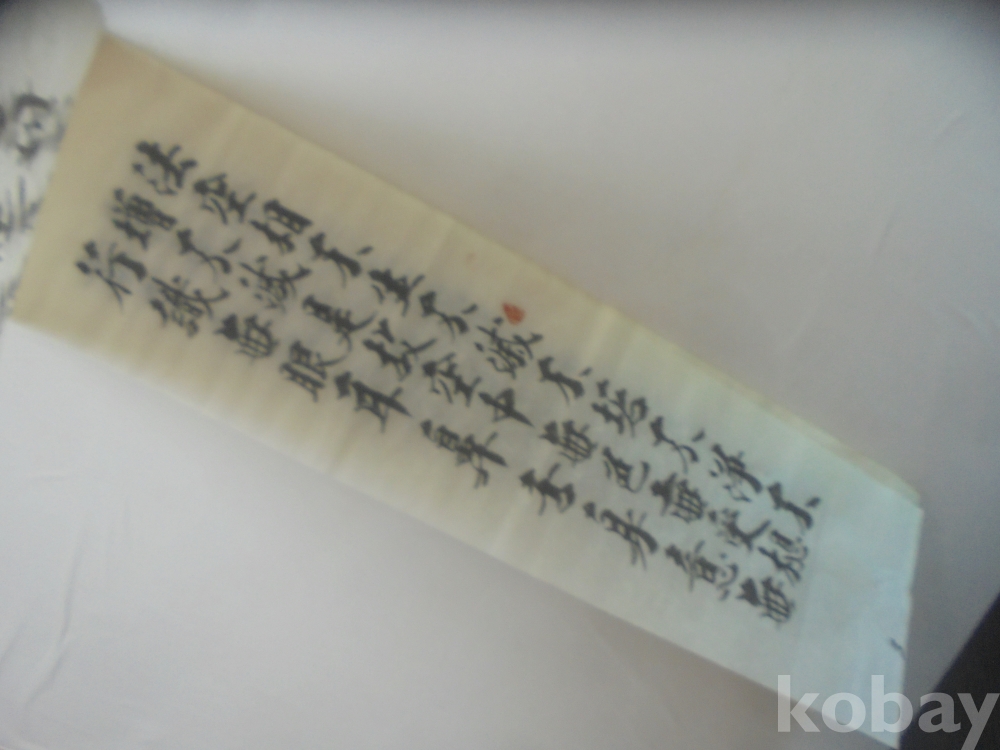 法空相不生不滅不垢不淨不
增不減是故空中無色無受想
行識無眼耳鼻舌身意無
kobay